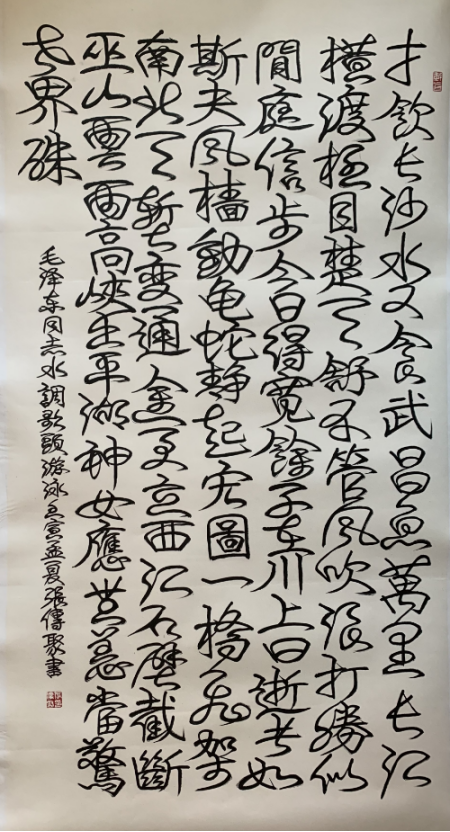 才飲长沙水又食武昌魚萬里长江
橫渡極目楚天舒不管風吹浪打勝似
閒庭信步今日得寬餘子在川上曰逝者如
斯夫風檣動龟蛇靜起宏圖一橋飛架
南北天塹變通途更立西江石壁截斷
巫山雲雨高峽出平湖神女應無恙當驚
世界殊
毛泽东同志水調歌頭游泳壬寅孟夏張傳聚書